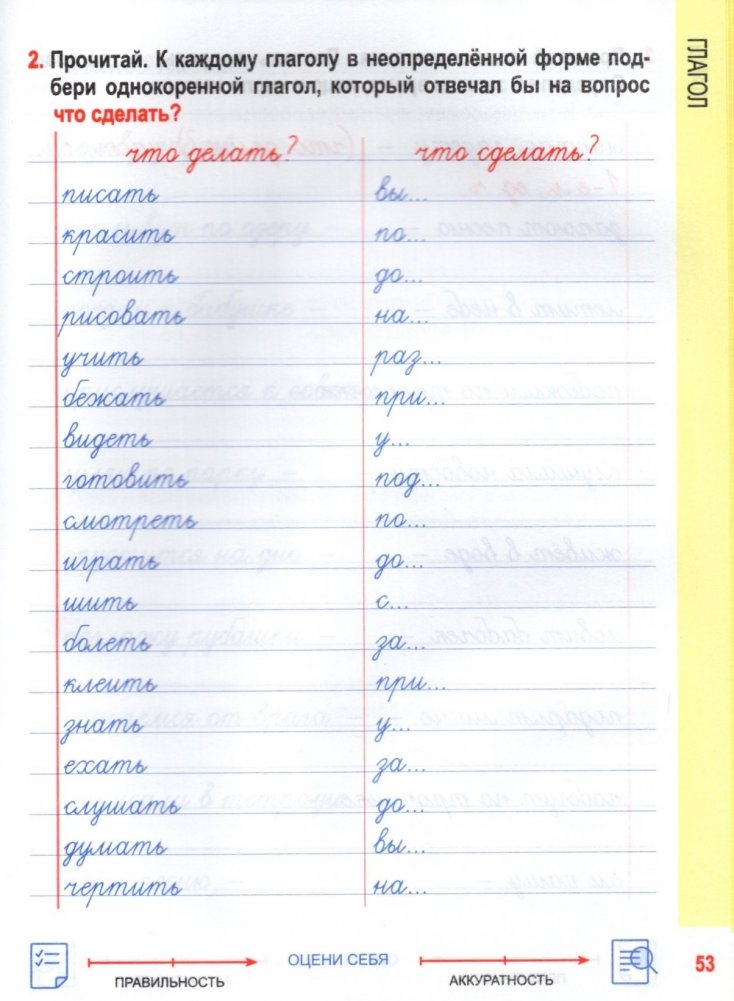 ГЛАГОЛ
2. Прочитай. К каждому глаголу в неопределённой форме под-
бери однокоренной глагол, который отвечал бы на вопрос
что сделать?
что делать? что сделать?
писать вы...
красить по...
строить до...
рисовать на...
учить раз...
бежать при...
видеть у...
готовить под...
смотреть по...
играть до...
шить с...
болеть за...
клеить при...
знать у...
ехать за...
слушать до...
думать вы...
чертить на...
ПРАВИЛЬНОСТЬ ОЦЕНИ СЕБЯ АККУРАТНОСТЬ 53